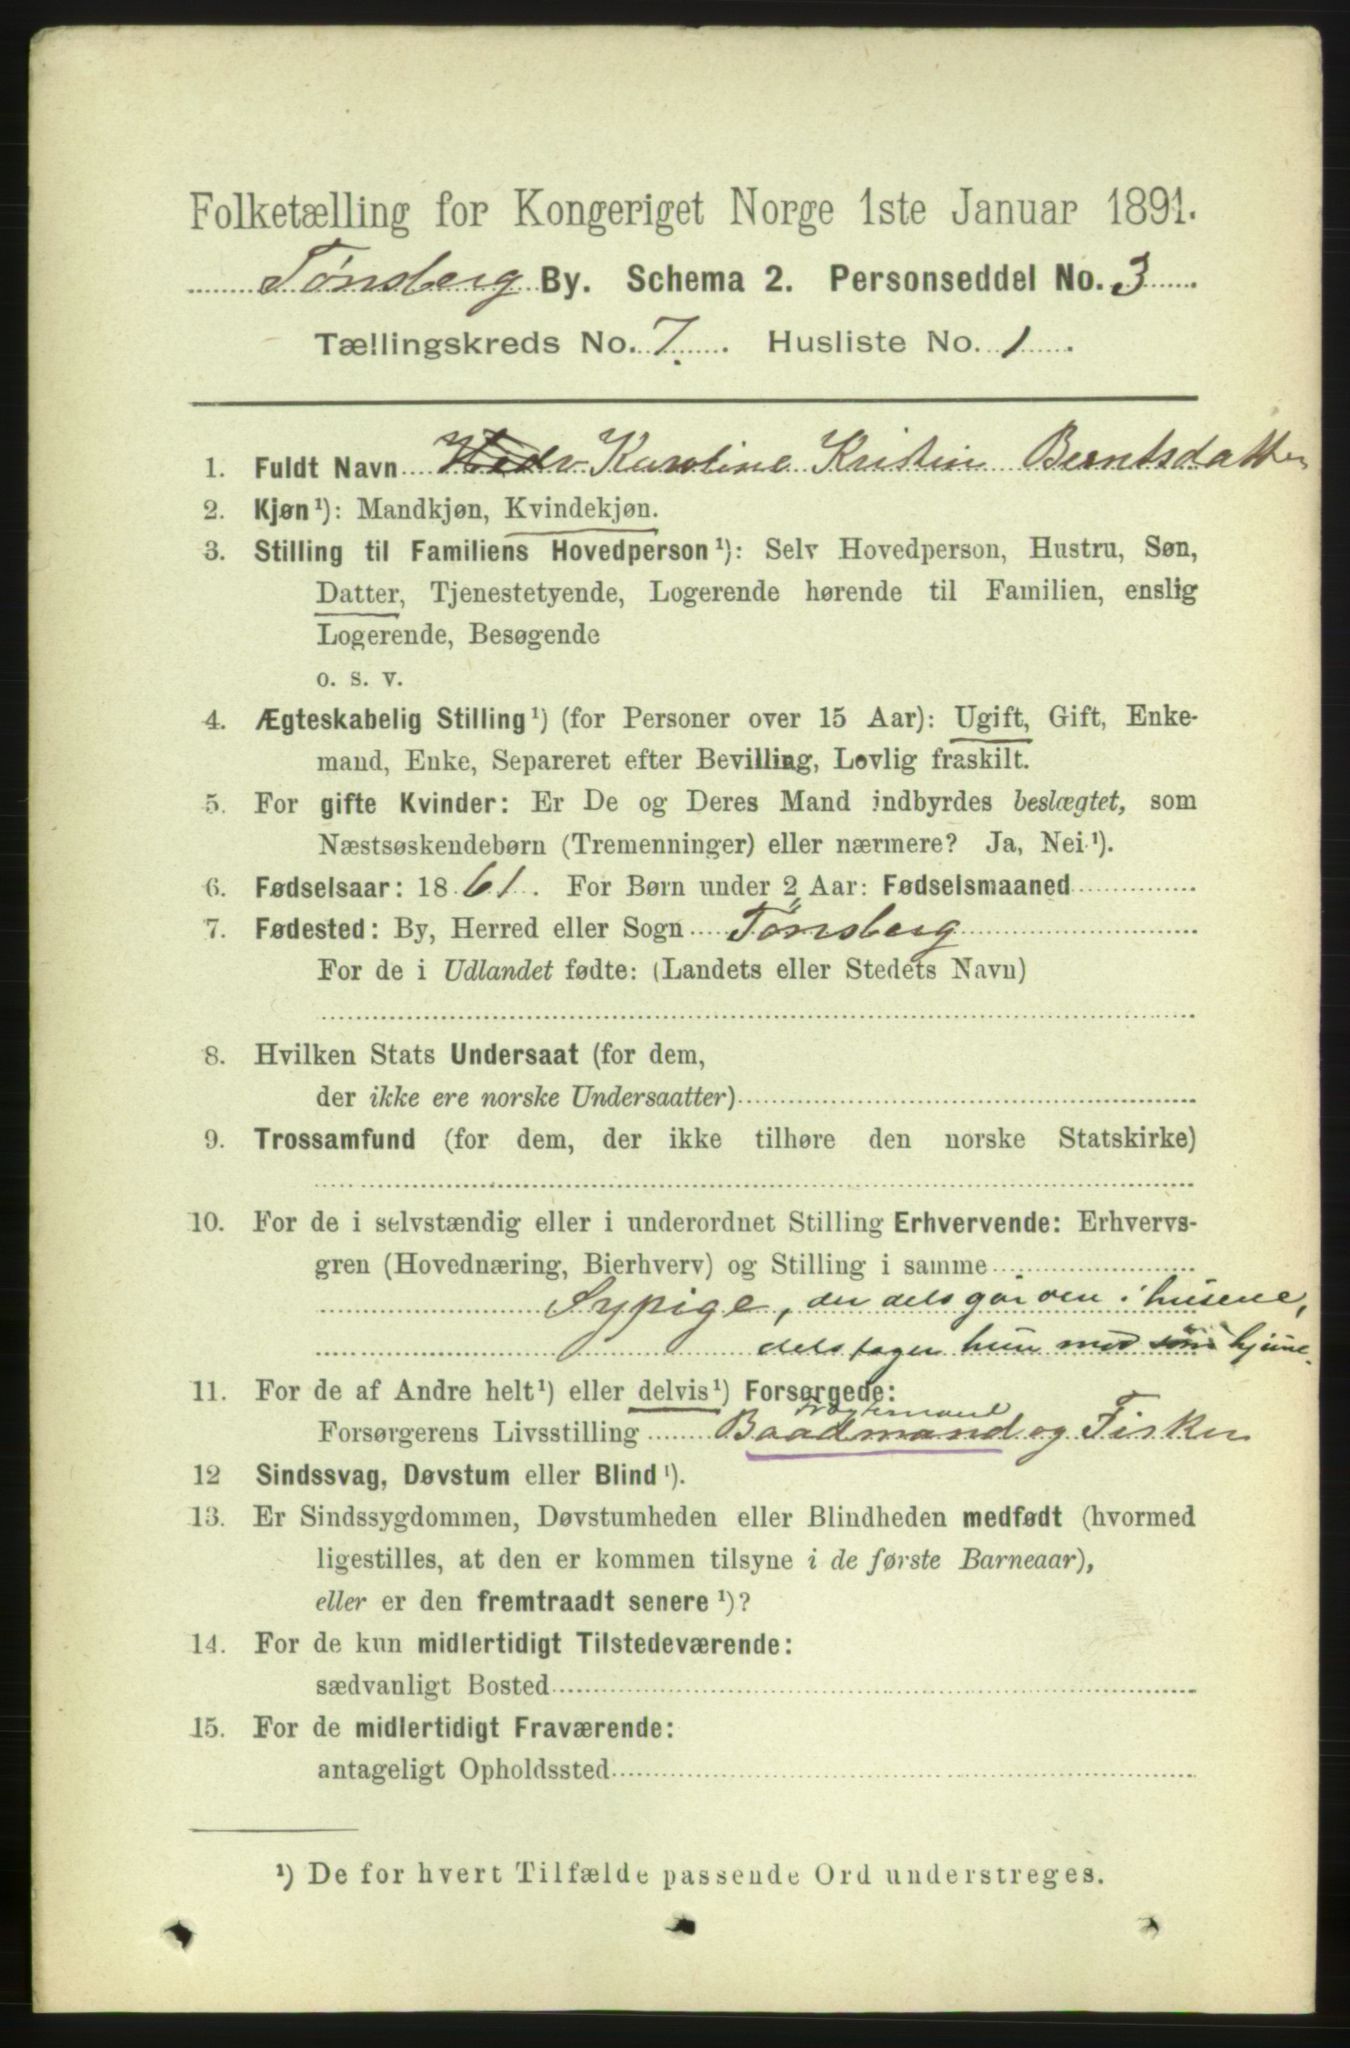 Folketælling for Kongeriget Norge 1ste Januar 1891.
Tønsberg By. Schema 2. Personseddel No. 3
Tællingskreds No. 7. Husliste No. 1
1. Fuldt Navn Karoline Kristin Berntsdatter
2. Kjøn¹): Mandkjøn, Kvindekjøn.
3. Stilling til Familiens Hovedperson¹): Selv Hovedperson, Hustru, Søn,
Datter, Tjenestetyende, Logerende hørende til Familien, enslig
Logerende, Besøgende
o. s. v.
4. Ægteskabelig Stilling¹) (for Personer over 15 Aar): Ugift, Gift, Enke-
mand, Enke, Separeret efter Bevilling, Lovlig fraskilt.
5. For gifte Kvinder: Er De og Deres Mand indbyrdes beslægtet, som
Næstsøskendebørn (Tremenninger) eller nærmere? Ja, Nei ¹).
6. Fødselsaar: 1861. For Børn under 2 Aar: Fødselsmaaned
7. Fødested: By, Herred eller Sogn Tønsberg
For de i Udlandet fødte: (Landets eller Stedets Navn)
8. Hvilken Stats Undersaat (for dem,
der ikke ere norske Undersaatter)
9. Trossamfund (for dem, der ikke tilhøre den norske Statskirke)
10. For de i selvstændig eller i underordnet Stilling Erhvervende: Erhvervs-
gren (Hovednæring, Bierhverv) og Stilling i samme
Sypige, der dels går om i husene,
dels tager hun mod søm hjime.
11. For de af Andre helt¹) eller delvis¹) Forsørgede:
Forsørgerens Livsstilling Baadmand og Fisker
12 Sindssvag, Døvstum eller Blind¹).
13. Er Sindssygdommen, Døvstumheden eller Blindheden medfødt (hvormed
ligestilles, at den er kommen tilsyne i de første Barneaar),
eller er den fremtraadt senere ¹)?
14. For de kun midlertidigt Tilstedeværende:
sædvanligt Bosted
15. For de midlertidigt Fraværende:
antageligt Opholdssted
¹) De for hvert Tilfælde passende Ord understreges.